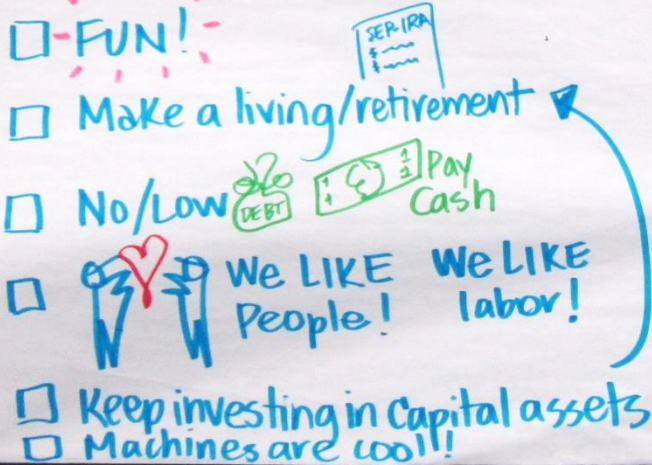 FUN!
SEP-IRA
$
$
Make a living/retirement
No/Low DEBT 1 1 1 1 Pay
Cash
We LIKE We LIKE
People! labor!
Keep investing in capital assets
Machines are cool!!